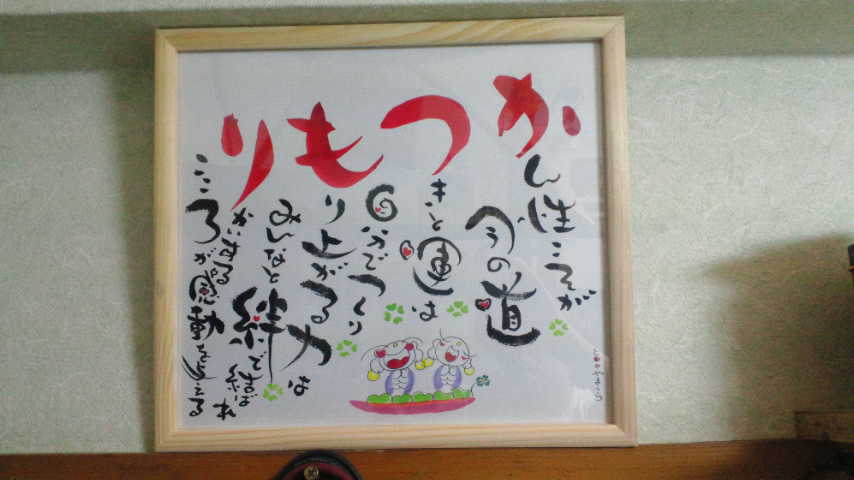 かん性こそが
今の道
つきと運は
自分でつくり
もり上がる力は
みんなと絆で結ばれ
りかいする
こころが感動を